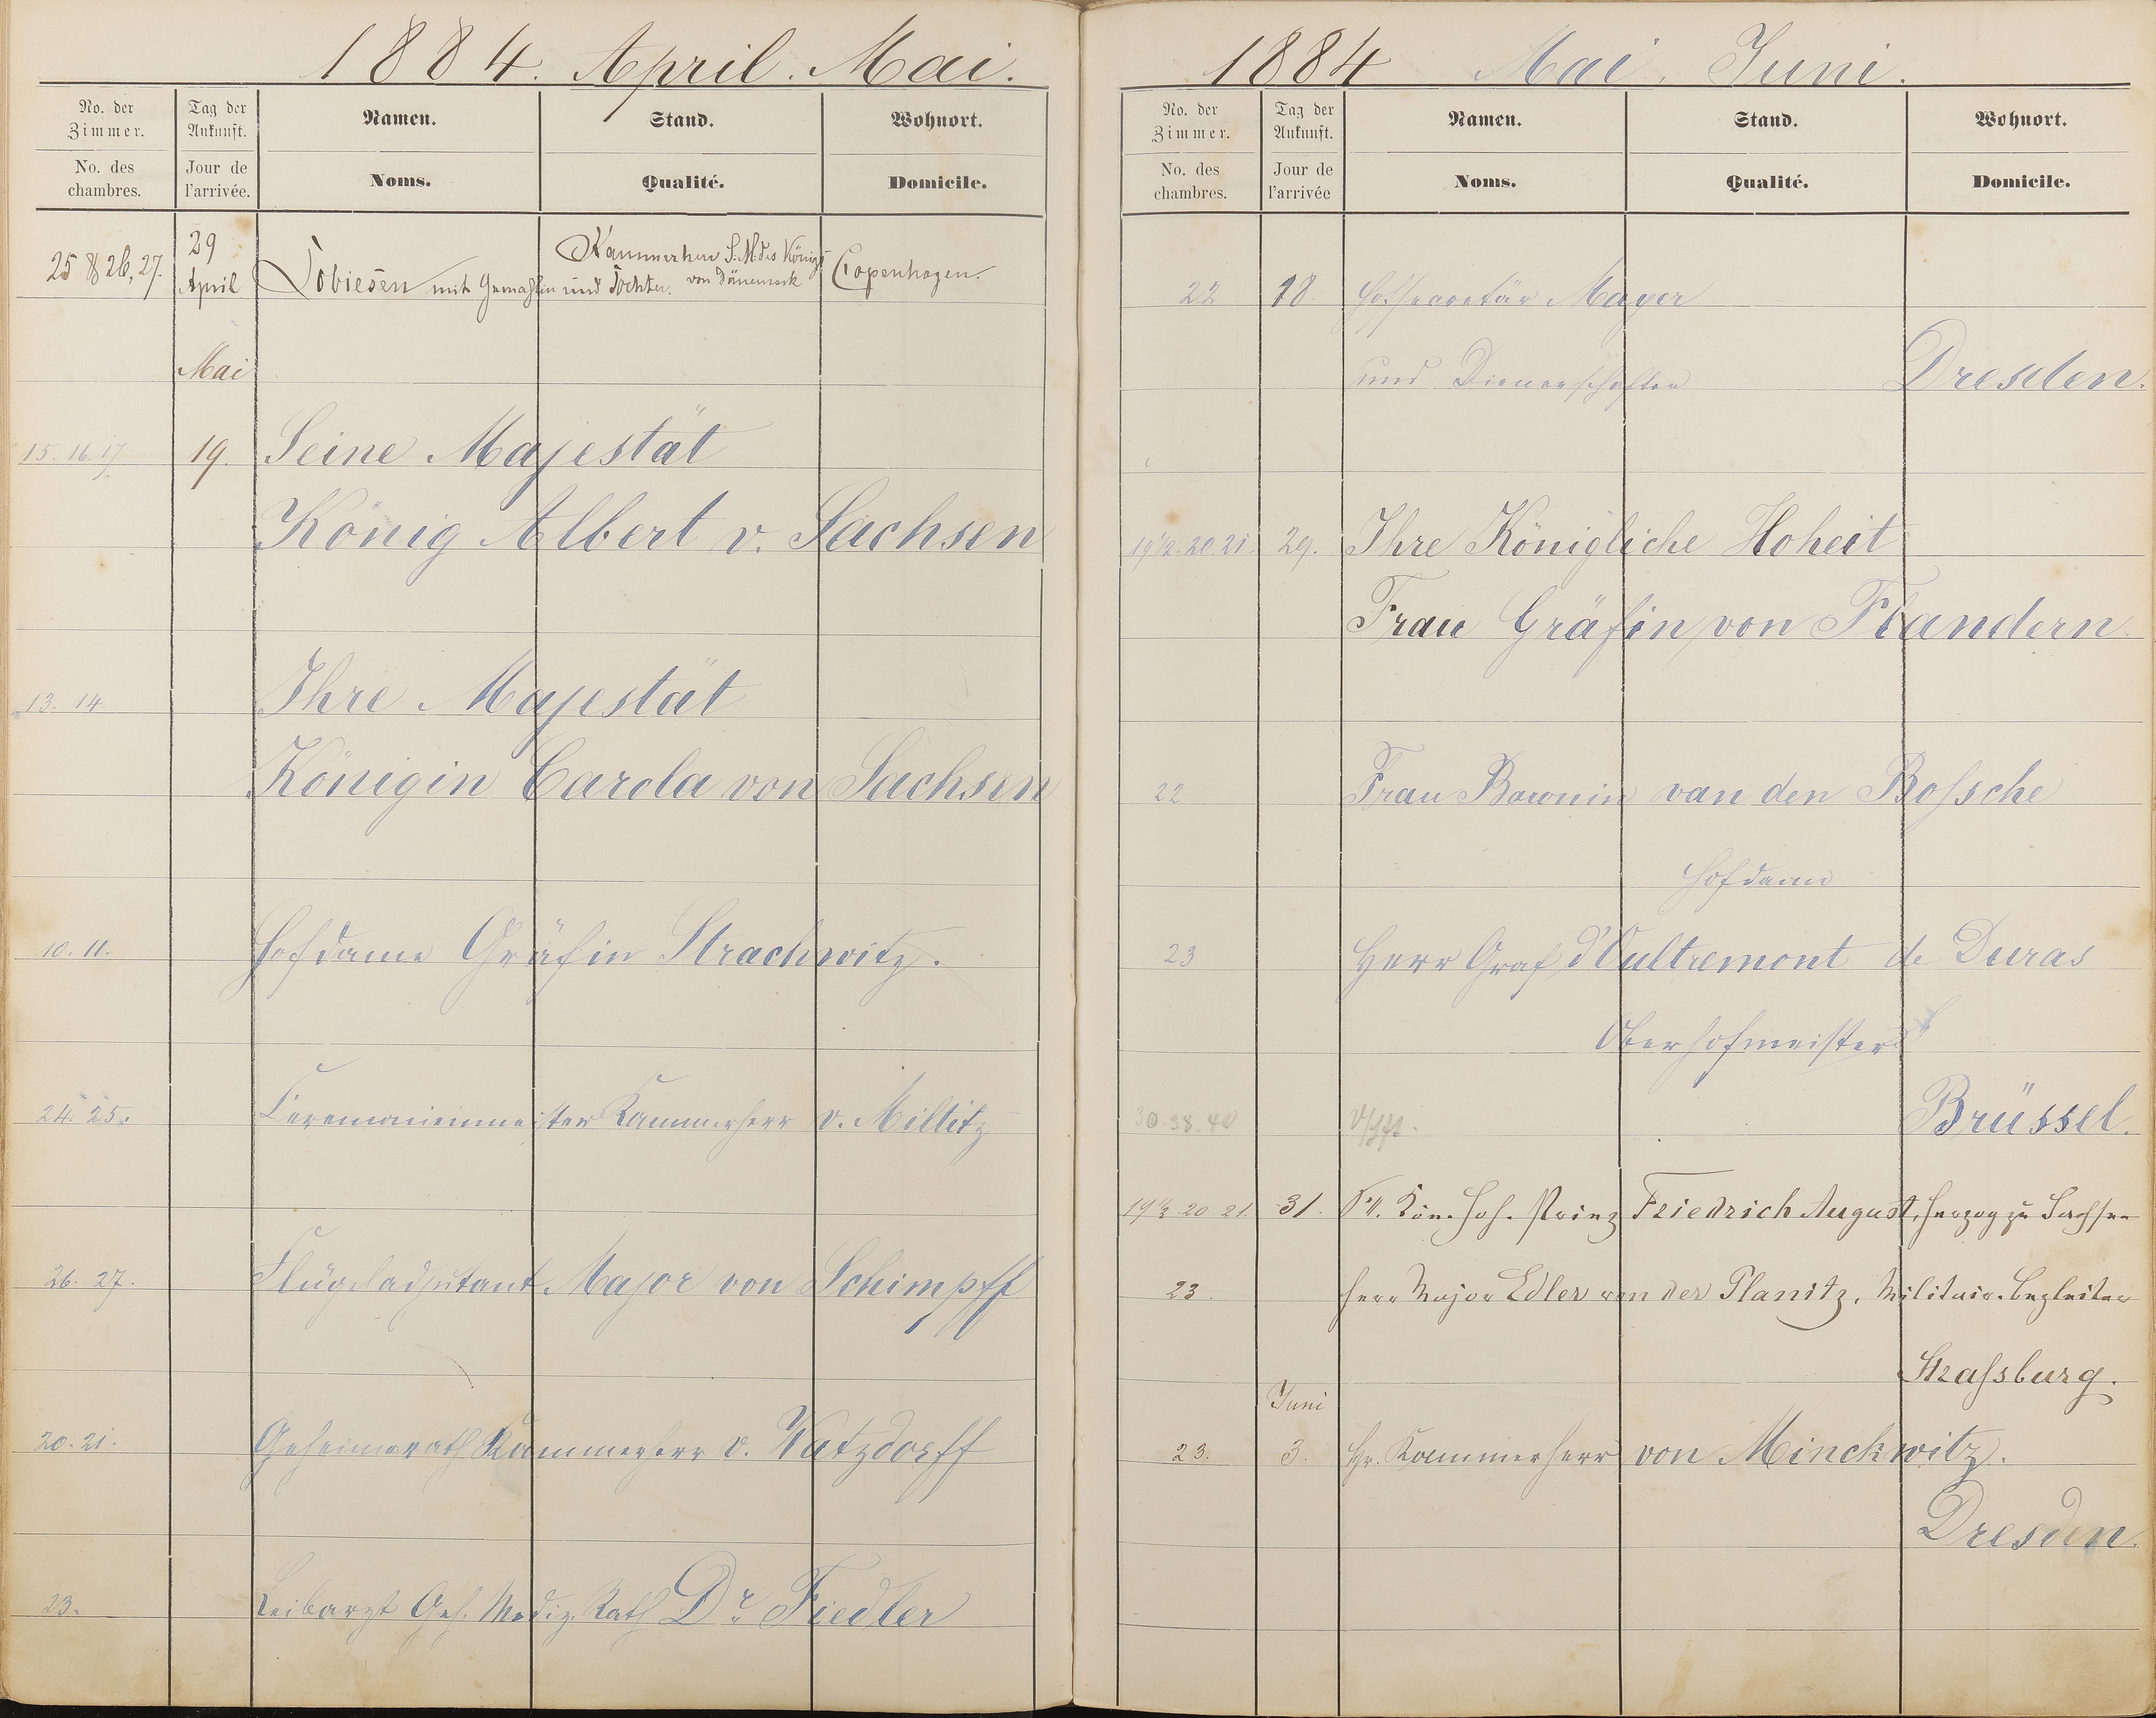 1884. April. Mai.
No. der Zimmer.
Tag der Ankunft.
Namen.
Stand.
Wohnort.
No. des chambres.
Jour de l'arrivée.
Noms.
Qualité.
Domicile.
25 & 26, 27. 29 April Tobiesen mit Gemahlin und Tochter. Kammerherr S. M. des Königs von Dänemark Copenhagen.
Mai
15. 16. 17 19. Seine Majestät
König Albert v. Sachsen
13. 14. Ihre Majestät
Königin Carola von Sachsen
10. 11. Hofdame Gräfin Strachwitz.
24. 25. Ceremonienmeister Kammerherr v. Miltitz
26. 27. Flügeladjutant Major von Schimpff
20. 21. Geheimerath Kammerherr v. Watzdorff
23. Leibarzt Geh. Mediz. Rath Dr. Fiedler
1884 Mai, Juni.
No. der Zimmer.
Tag der Ankunft.
Namen.
Stand.
Wohnort.
No. des chambres.
Jour de l'arrivée
Noms.
Qualité.
Domicile.
22 18. Hofsecretär Mayer
und Dienerschaften Dresden.
19½. 20. 21. 29. Ihre Königliche Hoheit
Frau Gräfin von Flandern
22 Frau Baronin van den Bossche
Hofdame
23 Herr Graf d'Oultremont de Duras
Oberhofmeister
38. 40 Brüssel.
19½ 20 21. 31. Kön. Hoh. Prinz Friedrich August, Herzog zu Sachsen
23. Herr Major Edler von der Planitz, Militair-Begleiter
Strassburg.
Juni
23. 3. Hr. Kammerherr von Minckwitz.
Dresden.